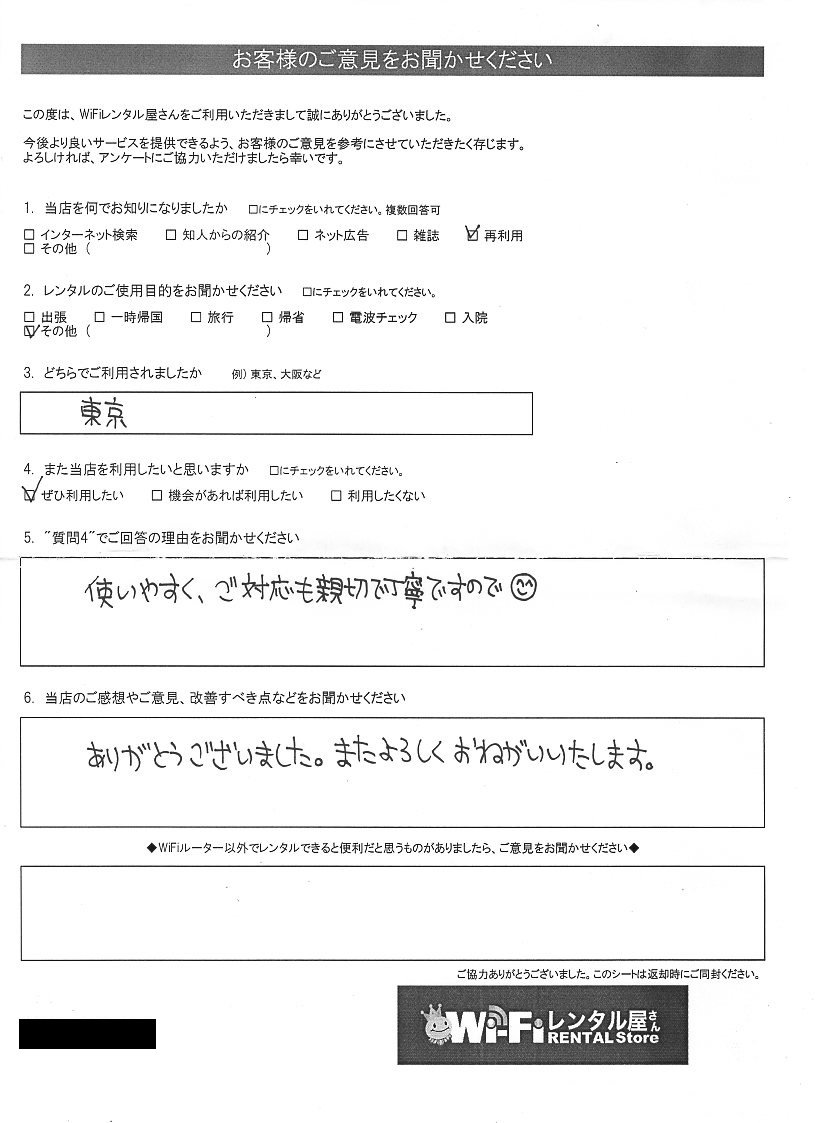 お客様のご意見をお聞かせください
この度は、WiFiレンタル屋さんをご利用いただきまして誠にありがとうございました。
今後より良いサービスを提供できるよう、お客様のご意見を参考にさせていただきたく存じます。
よろしければ、アンケートにご協力いただけましたら幸いです。
1. 当店を何でお知りになりましたか □にチェックをいれてください。複数回答可
□ インターネット検索 □ 知人からの紹介 □ ネット広告 □ 雑誌 ☑ 再利用
□ その他 ( )
2. レンタルのご使用目的をお聞かせください □にチェックをいれてください。
□ 出張 □ 一時帰国 □ 旅行 □ 帰省 □ 電波チェック □ 入院
☑ その他 ( )
3. どちらでご利用されましたか 例) 東京、大阪など
東京
4. また当店を利用したいと思いますか □にチェックをいれてください。
☑ ぜひ利用したい □ 機会があれば利用したい □ 利用したくない
5. "質問4"でご回答の理由をお聞かせください
使いやすく、ご対応も親切で丁寧ですので😊
6. 当店のご感想やご意見、改善すべき点などをお聞かせください
ありがとうございました。またよろしくおねがいいたします。
◆WiFiルーター以外でレンタルできると便利だと思うものがありましたら、ご意見をお聞かせください◆
ご協力ありがとうございました。このシートは返却時にご同封ください。
Wi-Fiレンタル屋さん
RENTAL Store